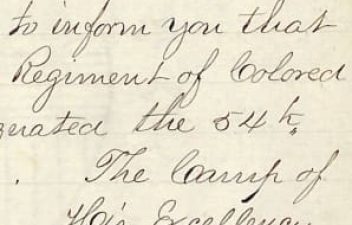 to inform you that
Regiment of Colored
gnated the 54th
. The Camp of
His Excellency